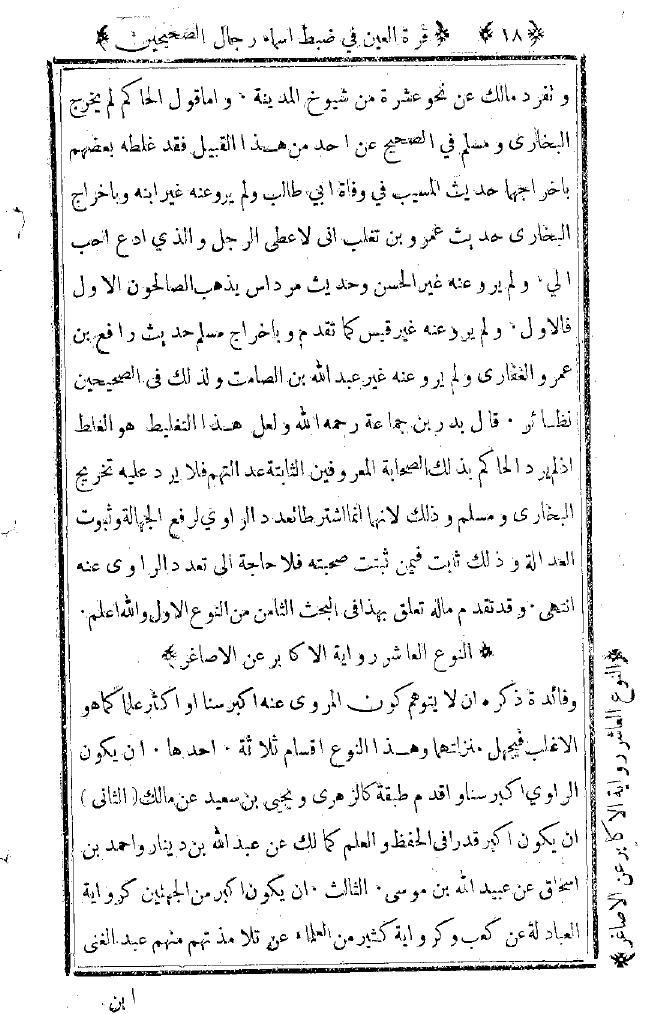 ﴿ ١٨ ﴾ ﴿ قرة العين في ضبط اسماء رجال الصحيحين ﴾
وتفرد مالك عن نحو عشرة من شيوخ المدينة · واما قول الحاكم لم يخرج
البخارى ومسلم في الصحيح عن احد من هذا القبيل فقد غلطه بعضهم
باخراجهما حديث المسيب في وفاة ابي طالب ولم يرو عنه غير ابنه وباخراج
البخارى حديث عمرو بن تغلب انى لاعطى الرجل والذي ادع احب
الي · ولم يرو عنه غير الحسن وحديث مرداس يذهب الصالحون الاول
فالاول · ولم يرو عنه غير قيس كما تقدم وباخراج مسلم حديث رافع بن
عمرو الغفارى ولم يرو عنه غير عبد الله بن الصامت ولذلك في الصحيحين
نظائر · قال بدر بن جماعة رحمه الله ولعل هذا التغليط هو الغلط
اذ لم يرد الحاكم بذلك الصحابة المعروفين الثابتة عدالتهم فلا يرد عليه تخريج
البخارى ومسلم وذلك لانهما انما اشترطا تعدد الراوي لرفع الجهالة وثبوت
العدالة وذلك ثابت فيمن ثبتت صحبته فلا حاجة الى تعدد الراوى عنه
انتهى · وقد تقدم ماله تعلق بهذا في البحث الثامن من النوع الاول والله اعلم ·
﴿ النوع العاشر رواية الاكابر عن الاصاغر ﴾
وفائدة ذكره ان لا يتوهم كون المروى عنه اكبر سنا او اكثر علما كما هو
الاغلب فيجهل منزلتهما وهذا النوع اقسام ثلاثة · احدها · ان يكون
الراوي اكبر سنا واقدم طبقة كالزهرى ويحيى بن سعيد عن مالك (الثانى)
ان يكون اكبر قدرا في الحفظ والعلم كمالك عن عبد الله بن دينار واحمد بن
اسحاق عن عبيد الله بن موسى · الثالث · ان يكون اكبر من الجهتين كرواية
العبادلة عن كعب وكرواية كثير من العلماء عن تلامذتهم منهم عبد الغنى
ابن ·
﴿ النوع العاشر رواية الاكابر عن الاصاغر ﴾